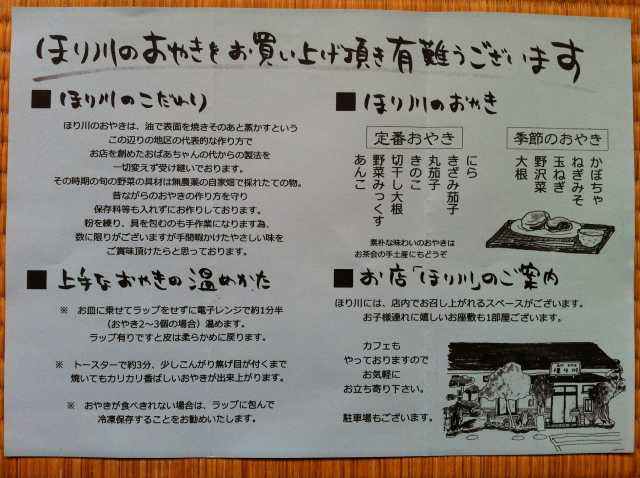 ほり川のおやきをお買い上げ頂き有難うございます
■ ほり川のこだわり
ほり川のおやきは、油で表面を焼きそのあと蒸かすという
この辺りの地区の代表的な作り方で
お店を創めたおばあちゃんの代からの製法を
一切変えず受け継いでおります。
その時期の旬の野菜の具材は無農薬の自家畑で採れたての物。
昔ながらのおやきの作り方を守り
保存料等も入れずにお作りしております。
粉を練り、具を包むのも手作業になります為、
数に限りがございますが手間暇かけたやさしい味を
ご賞味頂けたらと思っております。
■ ほり川のおやき
定番おやき
にら
きざみ茄子
丸茄子
きのこ
切干し大根
野菜みっくす
あんこ
季節のおやき
かぼちゃ
ねぎみそ
玉ねぎ
野沢菜
大根
素朴な味わいのおやきは
お茶会の手土産にもどうぞ
■ 上手なおやきの温めかた
※ お皿に乗せてラップをせずに電子レンジで約1分半
(おやき2~3個の場合) 温めます。
ラップ有りですと皮は柔らかめに戻ります。
※ トースターで約3分、少しこんがり焦げ目が付くまで
焼いてもカリカリ香ばしいおやきが出来上がります。
※ おやきが食べきれない場合は、ラップに包んで
冷凍保存することをお勧めいたします。
■ お店「ほり川」のご案内
ほり川には、店内でお召し上がれるスペースがございます。
お子様連れに嬉しいお座敷も1部屋ございます。
カフェも
やっておりますので
お気軽に
お立ち寄り下さい。
駐車場もございます。
ほり川